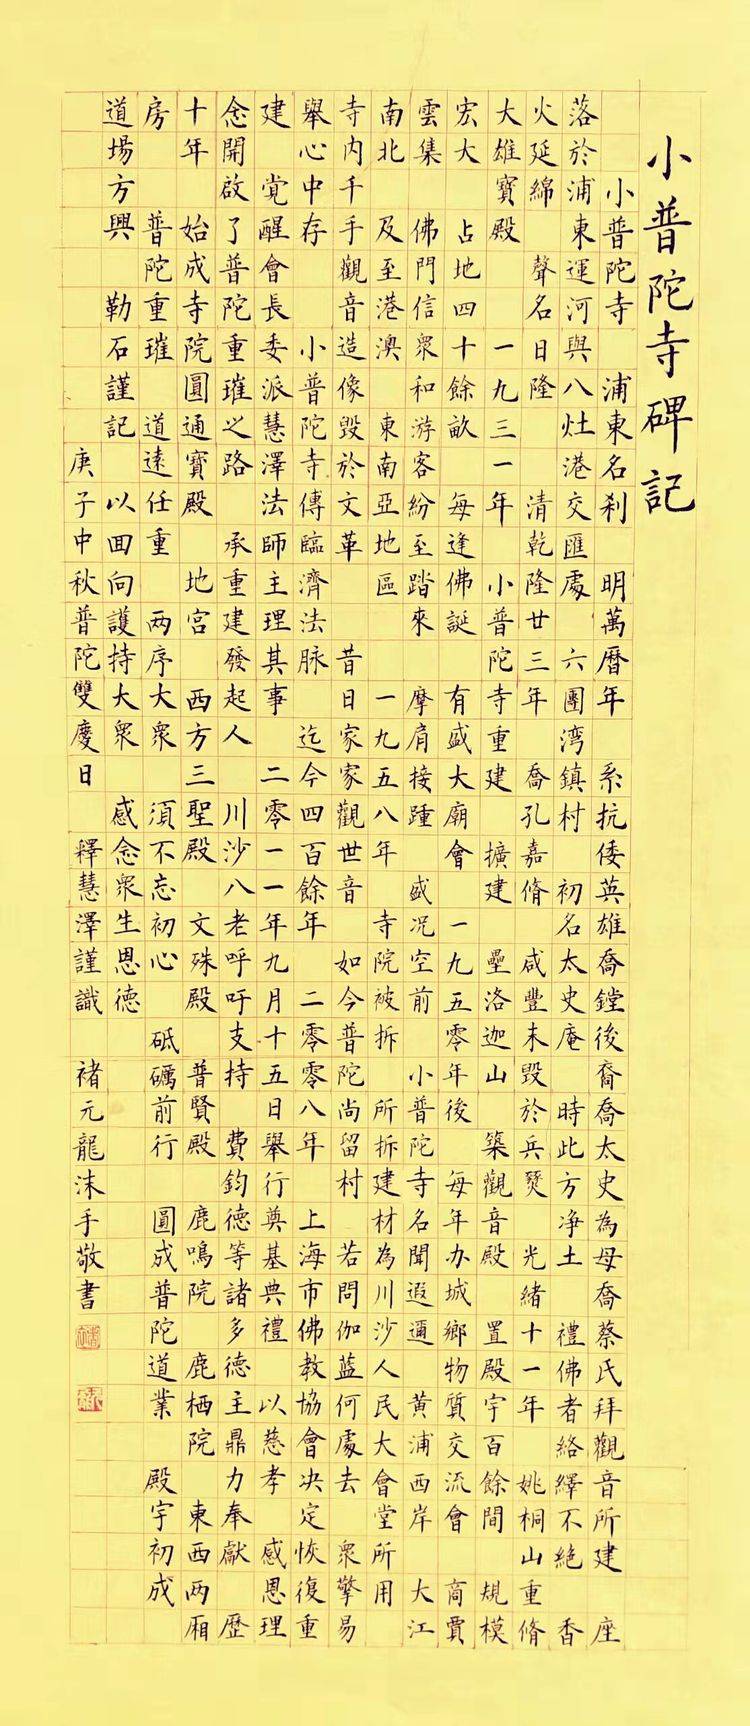 小普陀寺碑記
小普陀寺 浦東名刹 明萬曆年 系抗倭英雄喬鏜後裔喬太史為母喬蔡氏拜觀音所建 座
落於浦東運河與八灶港交匯處 六團湾鎮村 初名太史庵 時此方净土 禮佛者絡繹不絶 香
火延綿 聲名日隆 清乾隆廿三年 喬孔嘉脩 咸豐末毁於兵燹 光緒十一年 姚桐山重脩
大雄寶殿 一九三一年 小普陀寺重建 擴建 壘洛迦山 築觀音殿 置殿宇百餘間 規模
宏大 占地四十餘畝 每逢佛誕 有盛大廟會 一九五零年後 每年办城鄉物質交流會 商賈
雲集 佛門信衆和游客紛至踏來 摩肩接踵 盛况空前 小普陀寺名聞遐邇 黄浦西岸 大江
南北 及至港澳 東南亞地區 一九五八年 寺院被拆 所拆建材為川沙人民大會堂所用
寺内千手觀音造像毁於文革 昔日家家觀世音 如今普陀尚留村 若問伽蓝何處去 衆擎易
舉心中存 小普陀寺傳臨濟法脉 迄今四百餘年 二零零八年 上海市佛教協會决定恢復重
建 覚醒會長委派慧澤法師主理其事 二零一一年九月十五日舉行奠基典禮 以慈孝 感恩理
念開啟了普陀重璀之路 承重建發起人 川沙八老呼吁支持 費鈞德等諸多德主鼎力奉獻 歷
十年 始成寺院圓通寶殿 地宫 西方三聖殿 文殊殿 普賢殿 鹿鳴院 鹿栖院 東西两厢
房 普陀重璀 道遠任重 两序大衆 須不忘初心 砥礪前行 圓成普陀道業 殿宇初成
道場方興 勒石謹記 以回向護持大衆 感念衆生恩德
庚子中秋普陀雙慶日 釋慧澤謹識 褚元龍沫手敬書